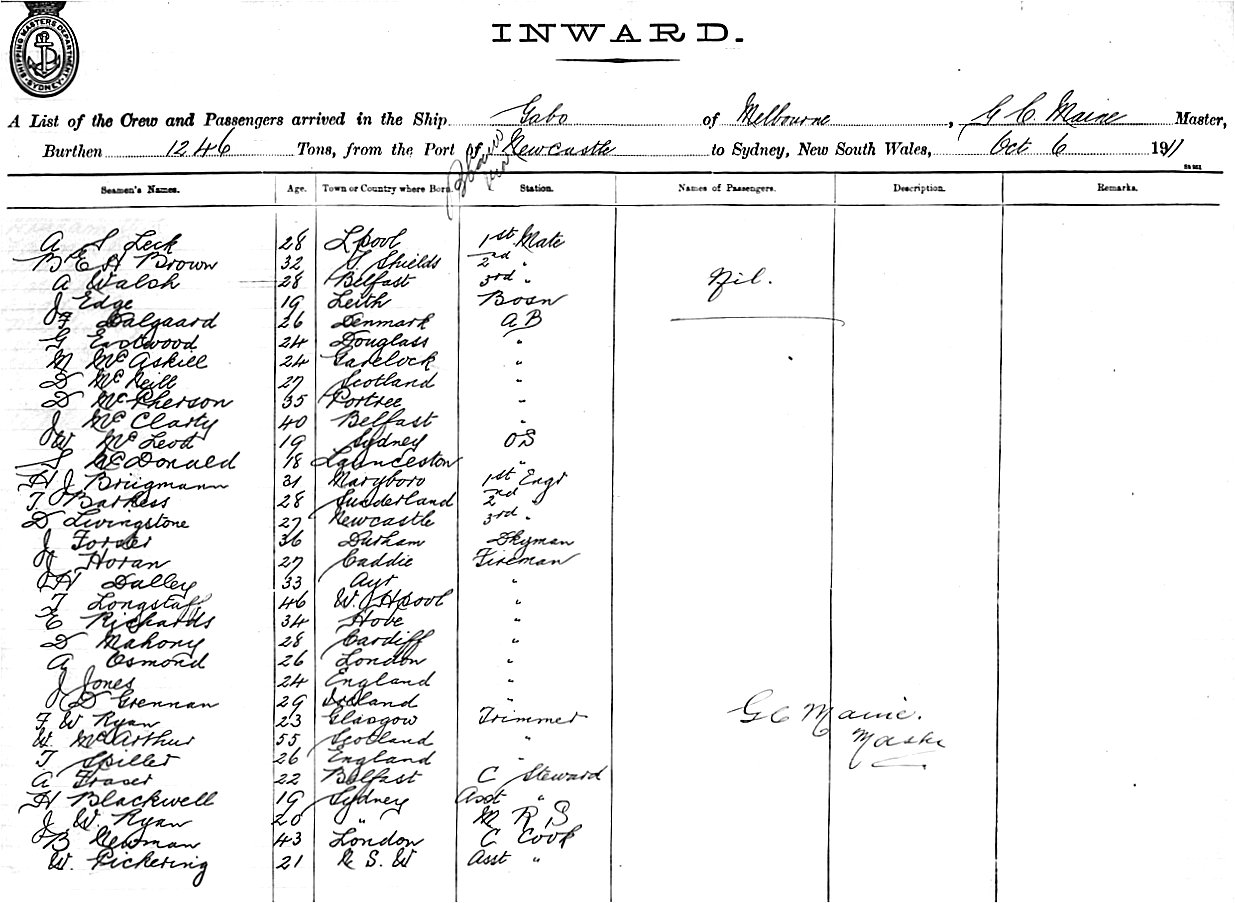 SHIPPING MASTERS DEPARTMENT SYDNEY
INWARD.
A List of the Crew and Passengers arrived in the Ship Gabo of Melbourne, G C. Maine Master,
Burthen 1246 Tons, from the Port of Newcastle to Sydney, New South Wales, Oct 6 1911
Seamen's Names. Age. Town or Country where Born. Station. Names of Passengers. Description. Remarks.
A S Leck 28 L'pool 1st Mate
B E H Brown 32 S. Shields 2nd "
A Walsh 28 Belfast 3rd " Nil.
J Edge 19 Leith Bosn
F Dalgaard 26 Denmark A B
G Eastwood 24 Douglass "
M McAskill 24 Garelock "
D McNeill 27 Scotland "
D McPherson 35 Portree "
J McClarty 40 Belfast "
W McLeod 19 Sydney OS
S McDonald 18 Launceston "
H J Brugmann 31 Maryboro 1st Engr
T Barkess 28 Sunderland 2nd "
D Livingstone 27 Newcastle 3rd "
J Forster 36 Durham Dkyman
J Horan 27 Caddie Fireman
H Dalley 33 Ayr "
T Longstaff 46 W. H'pool "
E Richards 34 Hove "
D Mahony 28 Cardiff "
A Osmond 26 London "
J Jones 24 England "
D Grennan 29 Ireland "
F W Ryan 23 Glasgow Trimmer G C Maine.
W. McArthur 55 Scotland " Master
T Spiller 26 England "
A Fraser 22 Belfast C Steward
H Blackwell 19 Sydney Asst "
J W. Ryan 20 " " M R S
B Newman 43 London C Cook
W. Pickering 21 N S. W Asst "